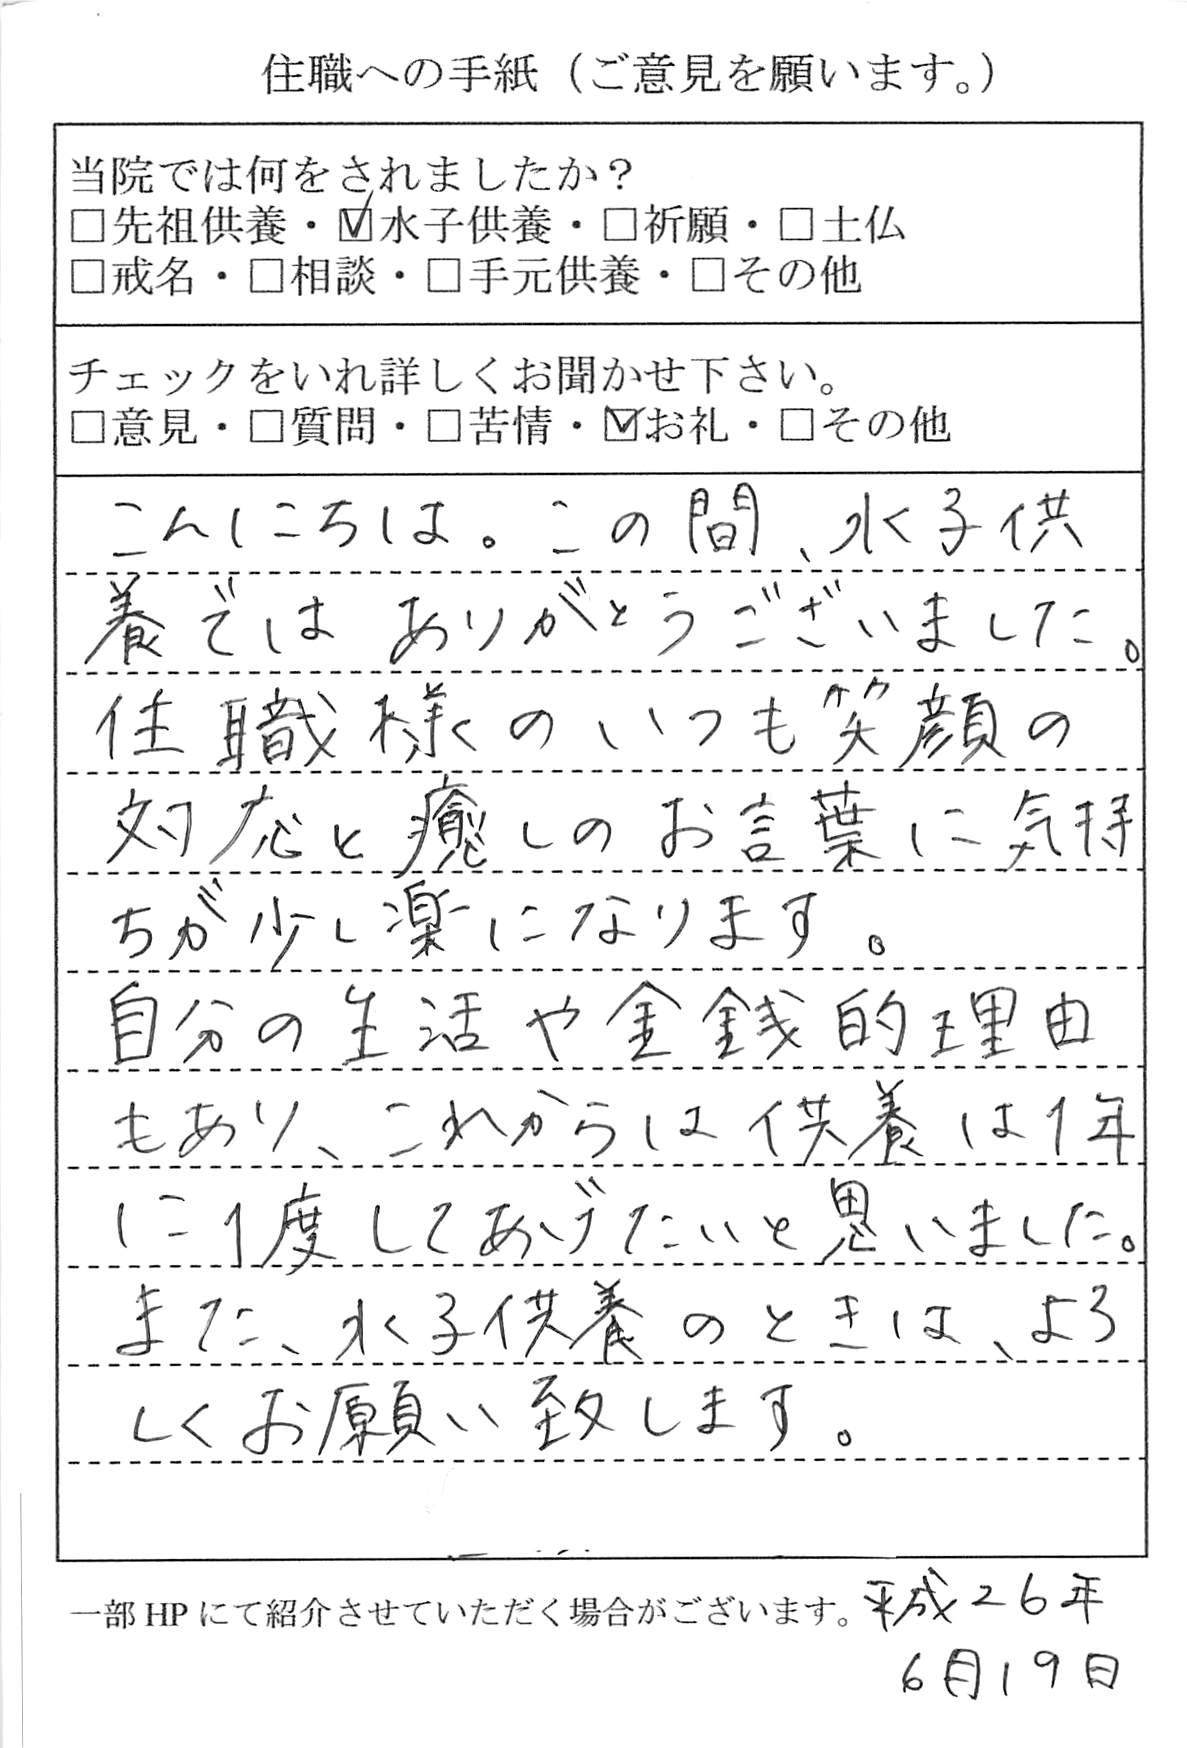 住職への手紙（ご意見を願います。）
当院では何をされましたか？
□先祖供養・☑水子供養・□祈願・□土仏
□戒名・□相談・□手元供養・□その他
チェックをいれ詳しくお聞かせ下さい。
□意見・□質問・□苦情・☑お礼・□その他
こんにちは。この間、水子供
養では ありがとうございました。
住職様のいつも笑顔の
対応と癒しのお言葉に気持
ちが少し楽になります。
自分の生活や金銭的理由
もあり、これからは供養は1年
に1度してあげたいと思いました。
また、水子供養のときは、よろ
しくお願い致します。
一部HPにて紹介させていただく場合がございます。平成26年
6月19日